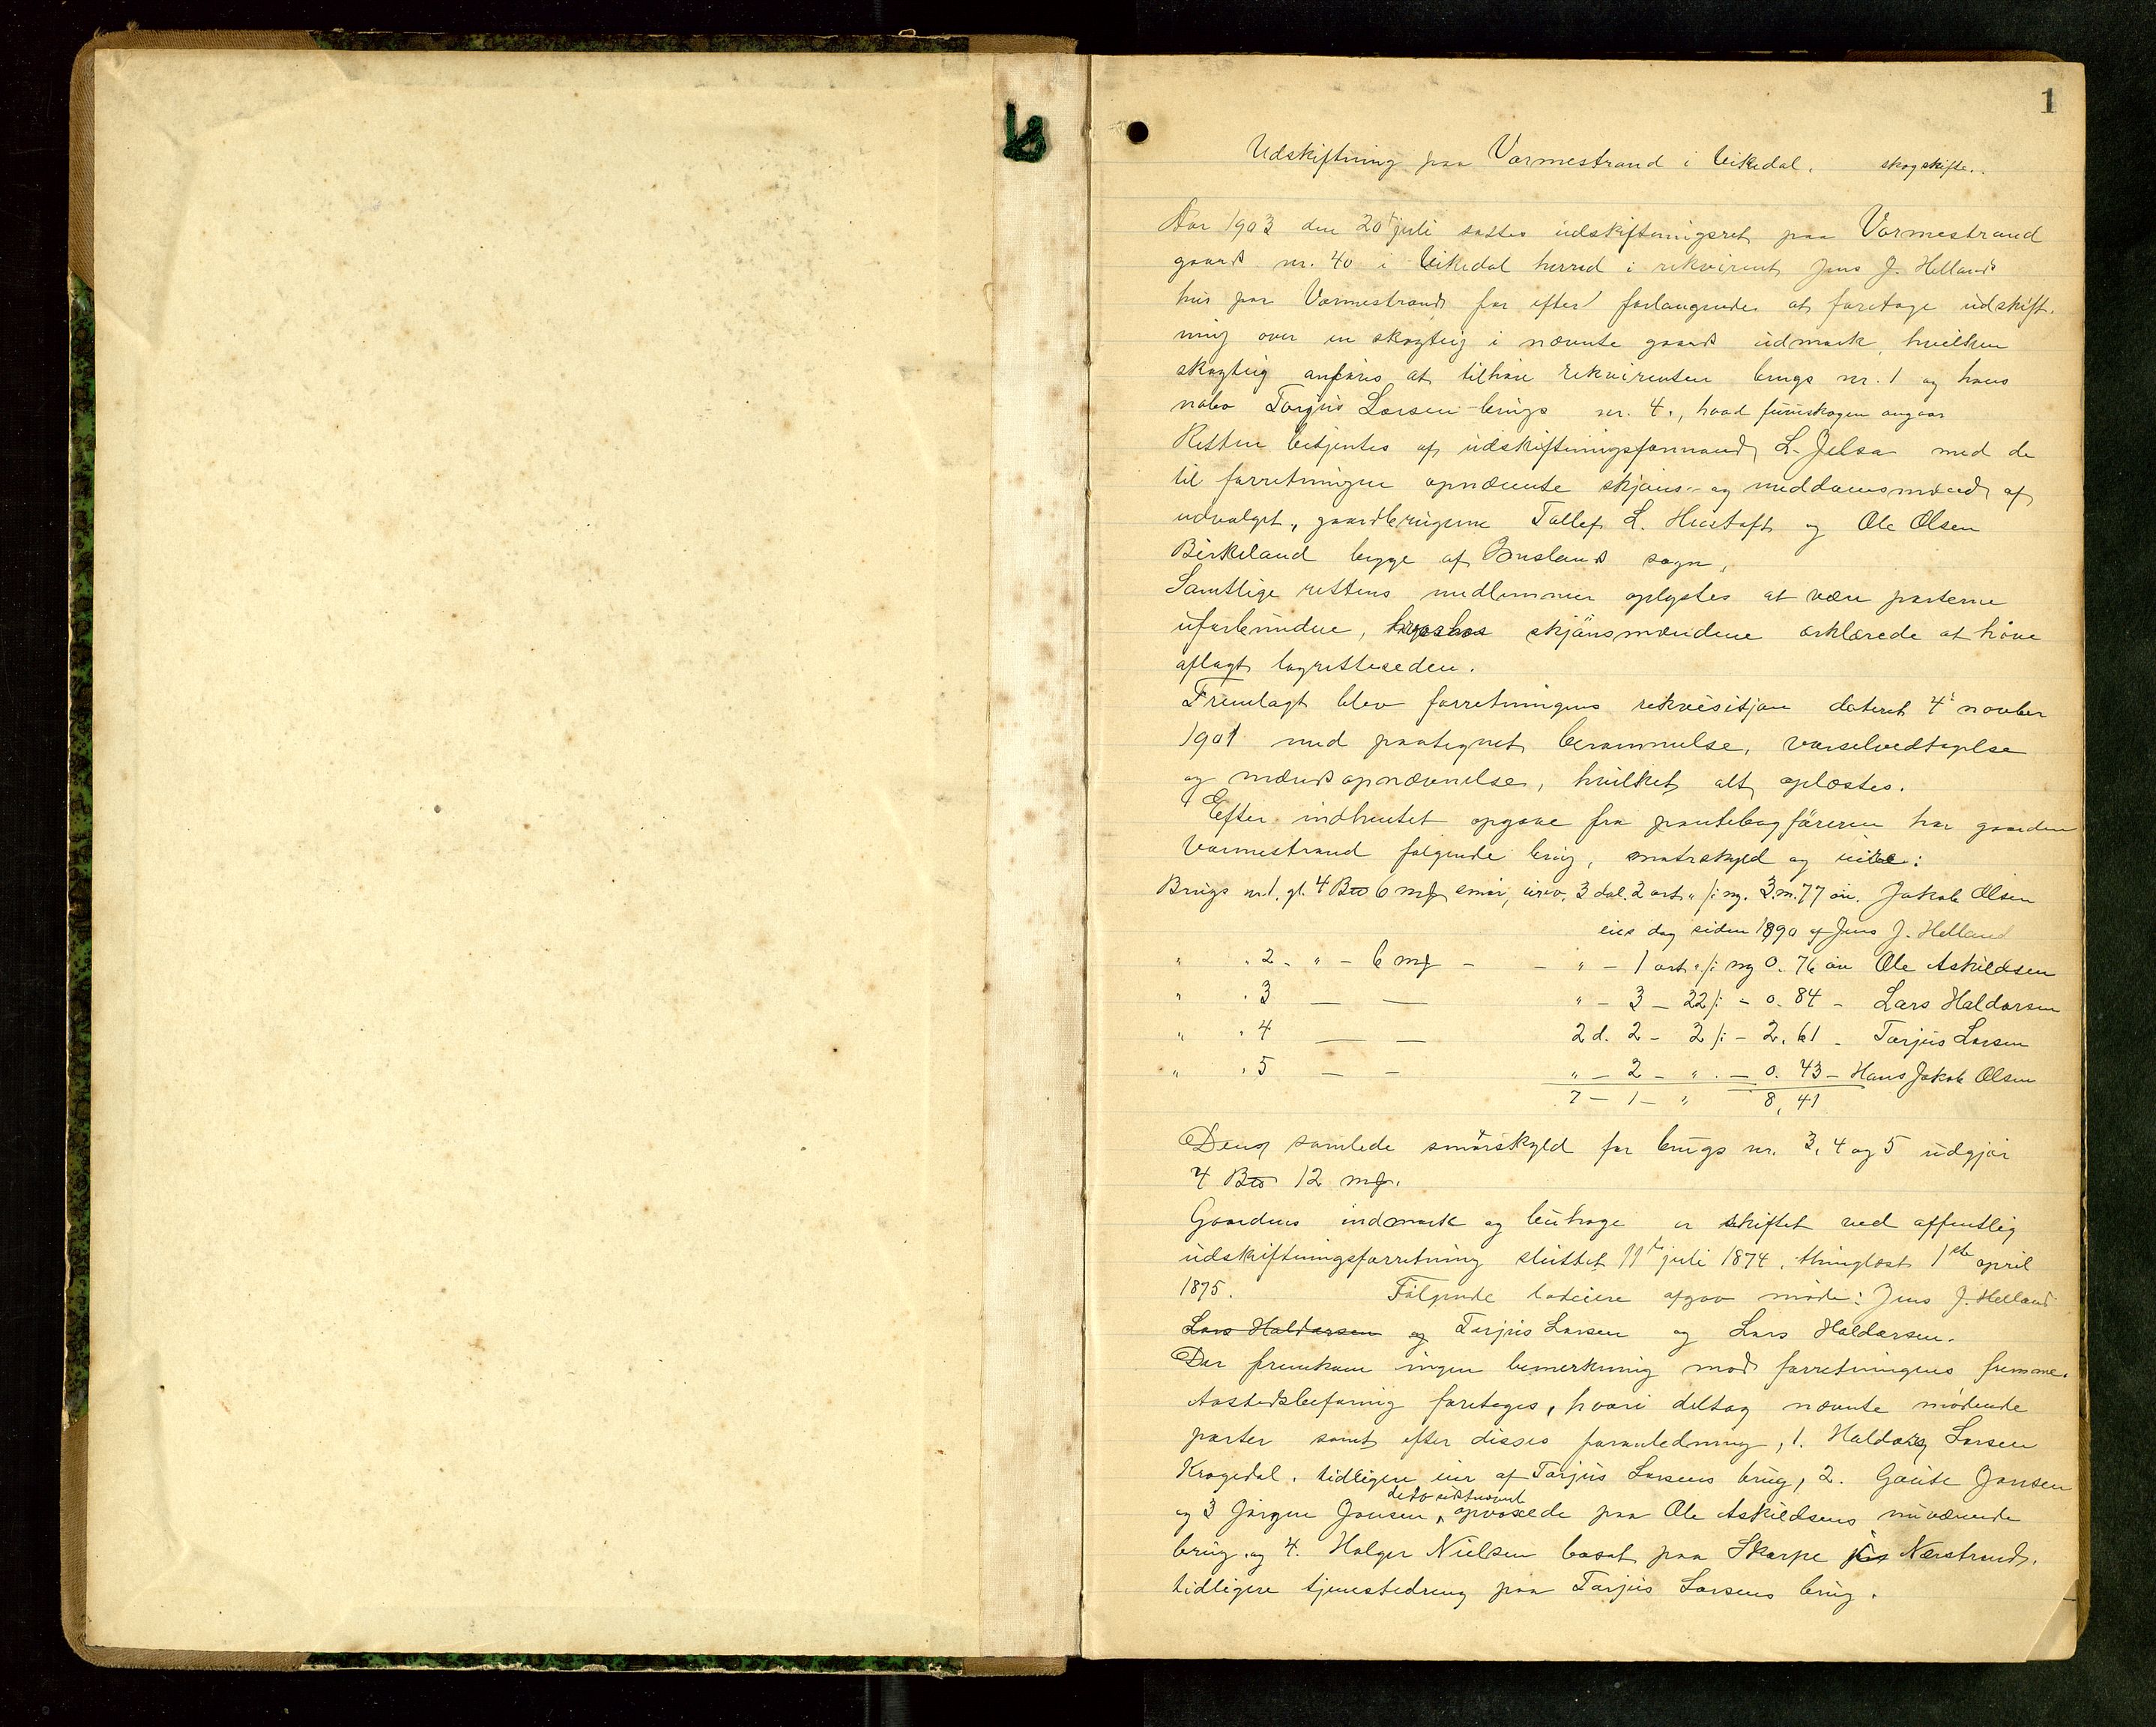 1
Udskiftning paa Vormestrand i Vikedal. skogskifte..
Aar 1903 den 20 juli sattes udskiftningsret paa Vormestrand
gaards nr. 40 i Vikedal herred i rekvirent Jens J. Hellands
hus paa Vormestrand for efter forlangende at foretage udskift-
ning over en skogteig i nævnte gaards udmark, hvilken
skogteig anføres at tilhøre rekvirenten brugs nr. 1 og hans
nabo Torjus Larsen - brugs nr. 4., hvad furuskogen angaar
Retten betjentes af udskiftningsformand L. Jelsa med de
til forretningen opnævnte skjøns- og meddomsmænd af
udvalget, gaardbrugerne Tollef L. Hustoft og Ole Olsen
Birkeland begge af Imslands sogn,
Samtlige rettens medlemmer oplystes at være parterne
uforbundne, skjønsmændene erklærede at have
aflagt lagretteseden.
Fremlagt blev forretningens rekvisitjon dateret 4' novber
1901 med paategnet berammelse, varselvedtagelse
og mændsopnævnelse, hvilket alt oplæstes.
Efter indhentet opgave fra pantebogføreren har gaarden
Vormestrand følgende brug, matrskyld og eiere:
Brugs nr. 1. gl. 4 Bw 6 mk smør, urev. 3 dal. 2 ort " /: ny. 3 m. 77 øre. Jakob Olsen
eies dog siden 1890 af Jens J. Helland
" . 2 - " - 6 mk - - " - 1 ort " /: ny 0. 76 øre Ole Askildsen
" . 3 — — " - 3 - 22 /: - 0. 84 - Lars Haldorsen
" . 4 — — 2 d. 2 - 2 /: - 2. 61 - Torjus Larsen
" . 5 — - " - 2 - " . - 0. 43 - Hans Jakob Olsen
7 - 1 - " 8, 41
Den samlede smørskyld for brugs nr. 3, 4 og 5 udgjør
4 Bw 12 mk.
Gaardens indmark og buhage er skiftet ved offentlig
udskiftningsforretning sluttet 11te juli 1874, thinglæst 1ste april
1875. Følgende lodeiere afgav møde: Jens J. Helland
Lars Haldorsen og Torjus Larsen og Lars Haldorsen.
Der fremkom ingen bemerkning mod forretningens fremme.
Aastedsbefaring foretoges, hvori deltog nævnte mødende
parter samt efter disses foranledning, 1. Haldor Larsen
Krogedal. tidligere eier af Torjus Larsens brug, 2. Gaute Jonsen
og 3 Jørgen Jonsen, de to sidstnævnt opvoxede paa Ole Askildsens nuværende
brug og 4. Holger Nielsen bosat paa Skarpe Nærstrand,
tidligere tjenestedreng paa Torjus Larsens brug.